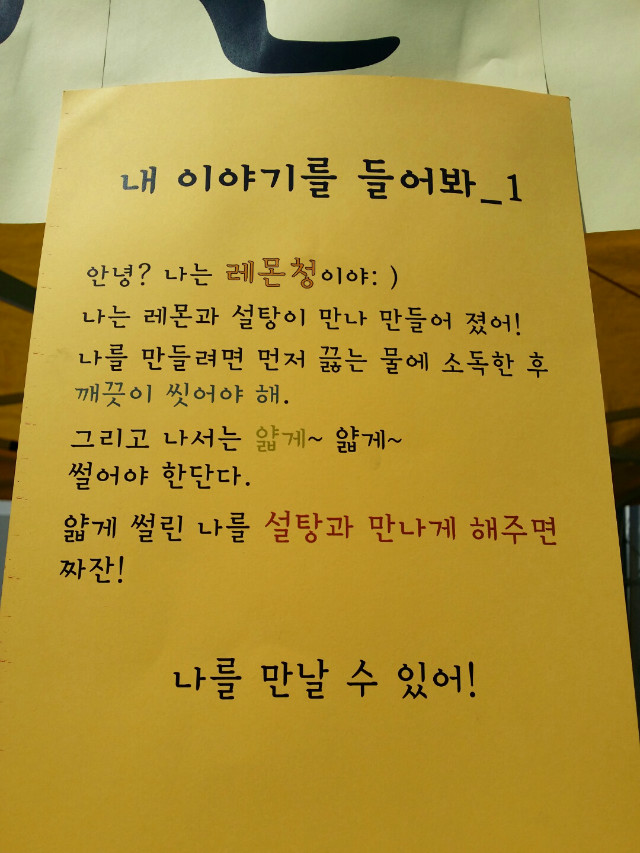 내 이야기를 들어봐_1
안녕? 나는 레몬청이야: )
나는 레몬과 설탕이 만나 만들어 졌어!
나를 만들려면 먼저 끓는 물에 소독한 후
깨끗이 씻어야 해.
그리고 나서는 얇게~ 얇게~
썰어야 한단다.
얇게 썰린 나를 설탕과 만나게 해주면
짜잔!
나를 만날 수 있어!